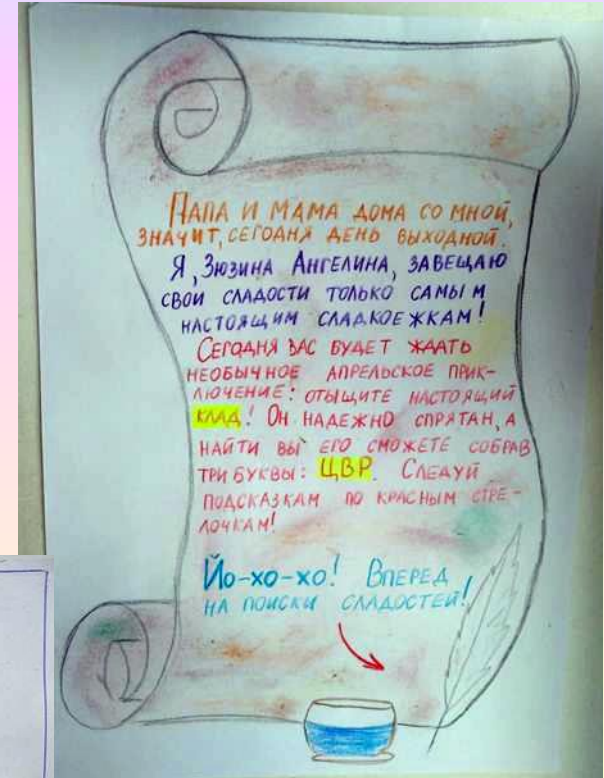 ПАПА И МАМА ДОМА СО МНОЙ,
ЗНАЧИТ, СЕГОДНЯ ДЕНЬ ВЫХОДНОЙ.
Я, ЗЮЗИНА АНГЕЛИНА, ЗАВЕЩАЮ
СВОИ СЛАДОСТИ ТОЛЬКО САМЫМ
НАСТОЯЩИМ СЛАДКОЕЖКАМ!
СЕГОДНЯ ВАС БУДЕТ ЖДАТЬ
НЕОБЫЧНОЕ АПРЕЛЬСКОЕ ПРИК-
ЛЮЧЕНИЕ: ОТЫЩИТЕ НАСТОЯЩИЙ
КЛАД! ОН НАДЕЖНО СПРЯТАН, А
НАЙТИ ВЫ ЕГО СМОЖЕТЕ СОБРАВ
ТРИ БУКВЫ: ЦВР. СЛЕДУЙ
ПОДСКАЗКАМ ПО КРАСНЫМ СТРЕ-
ЛОЧКАМ!
ЙО-ХО-ХО! ВПЕРЕД
НА ПОИСКИ СЛАДОСТЕЙ!